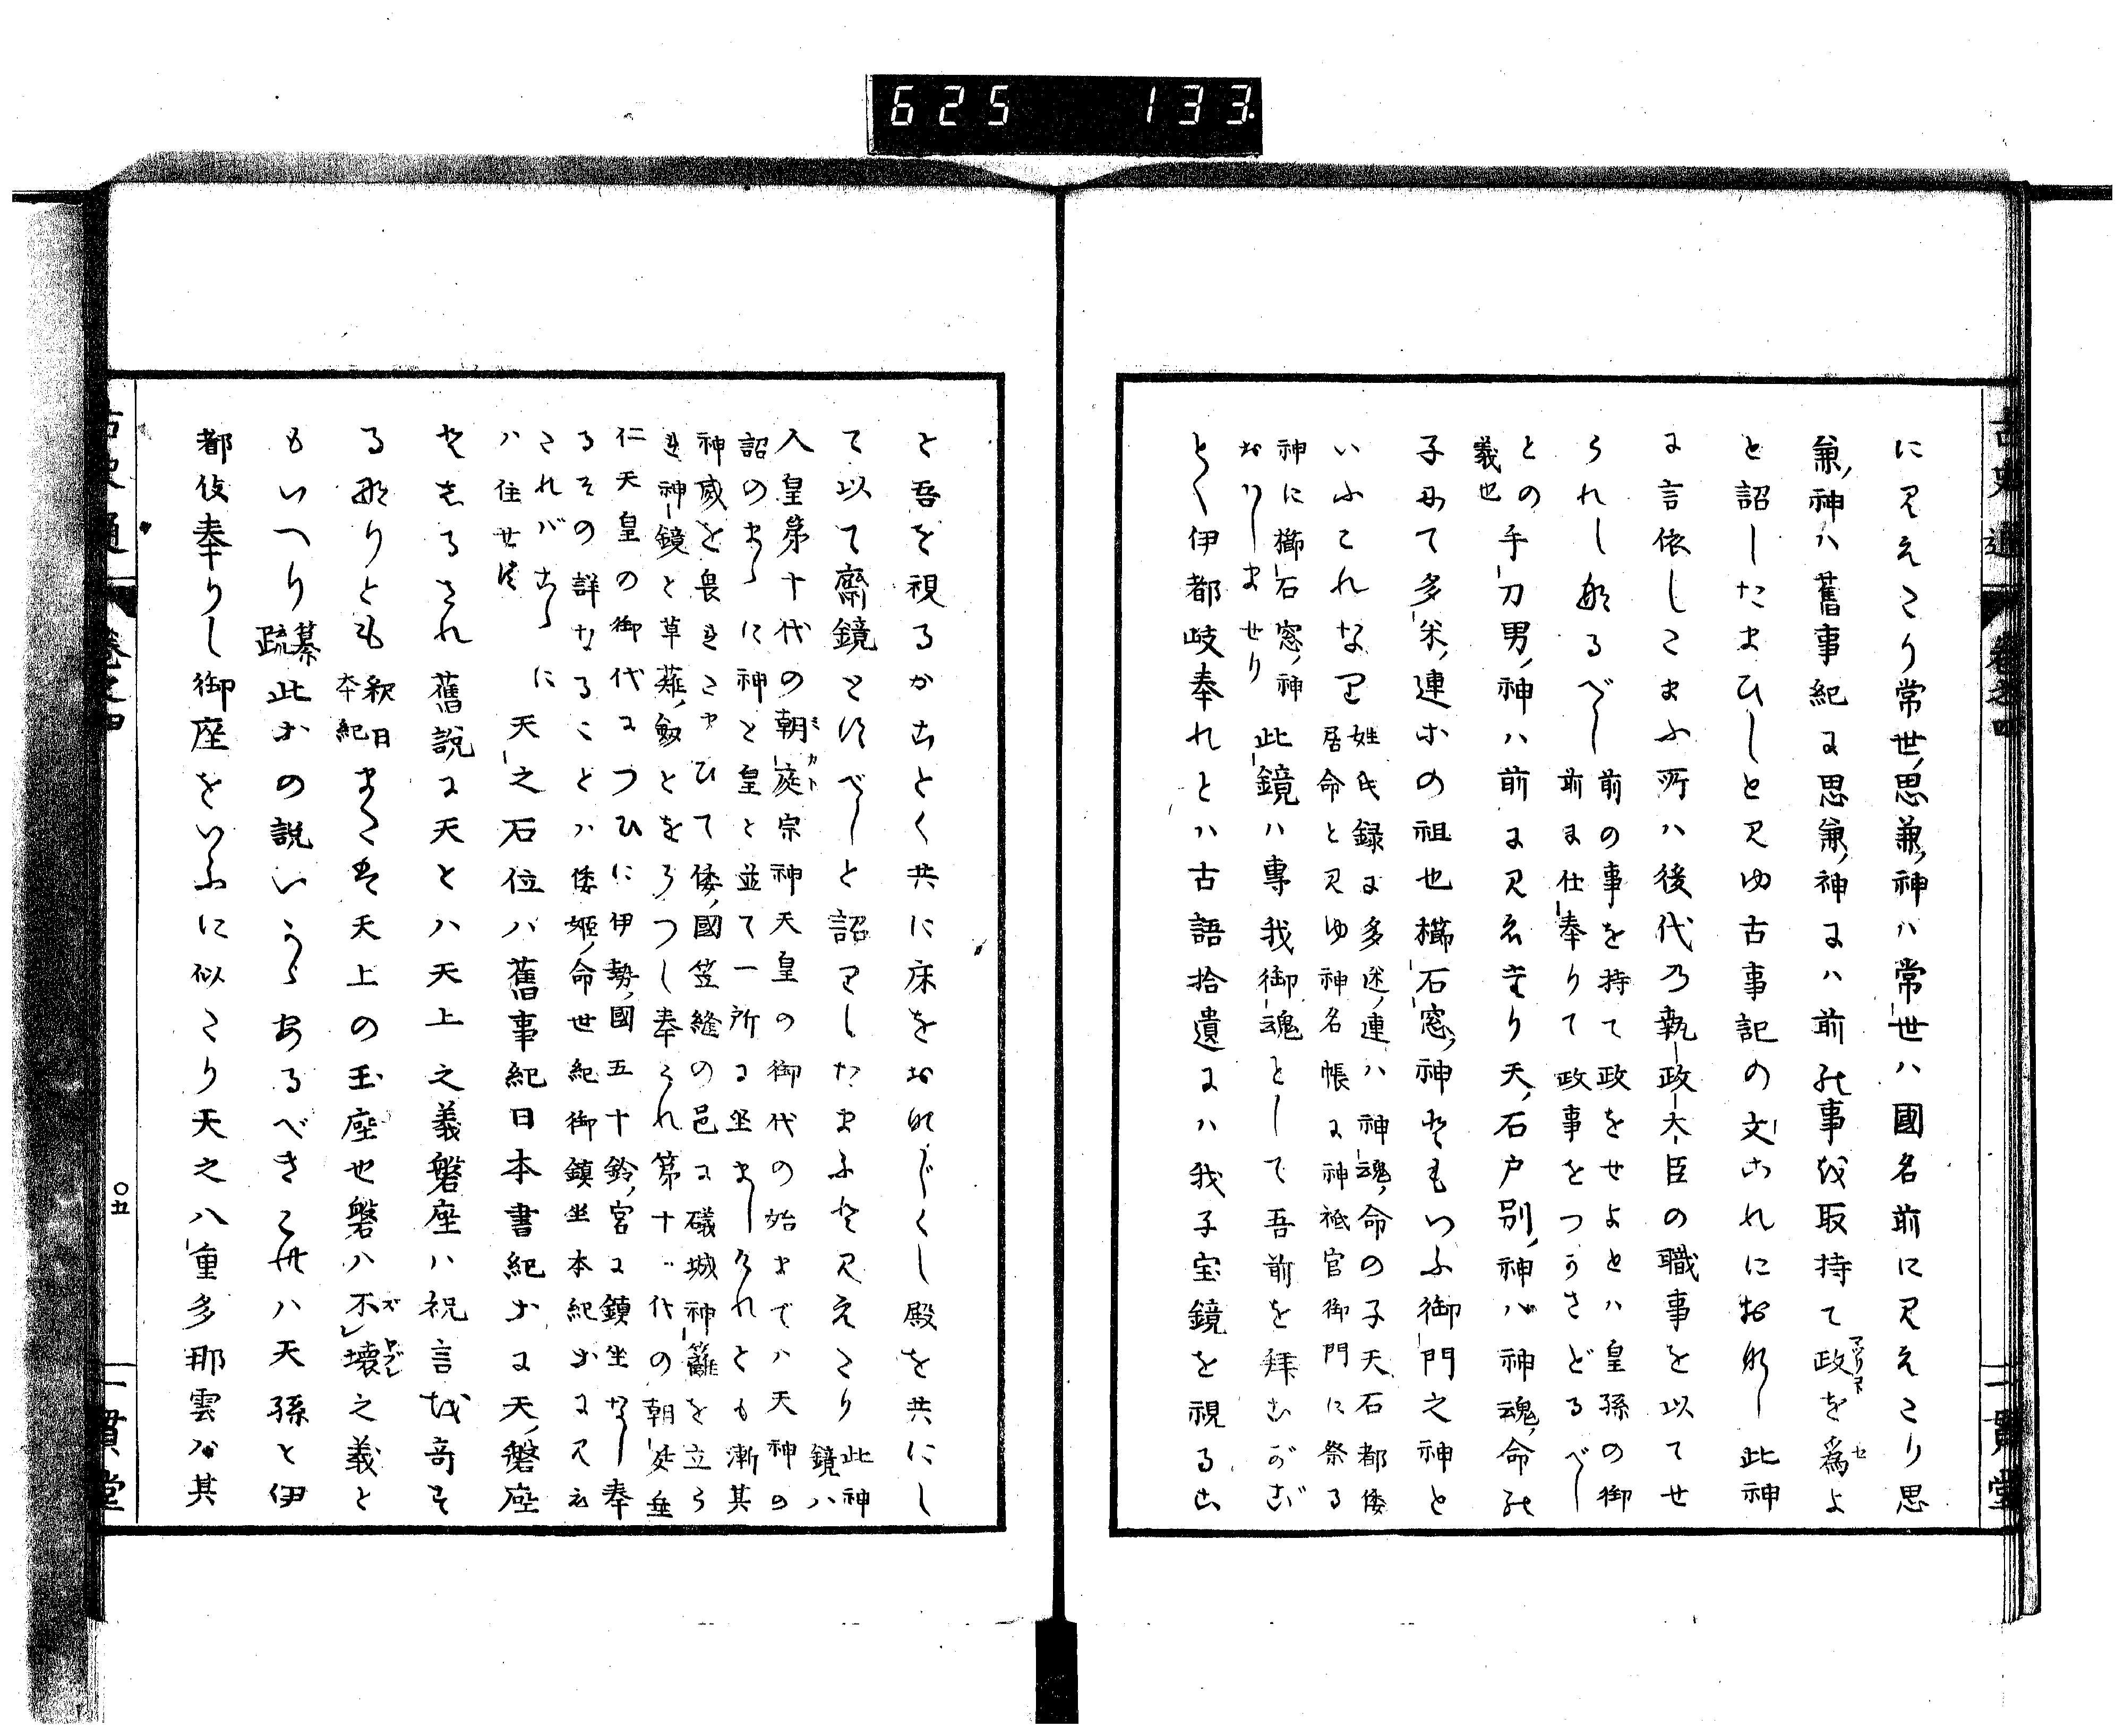 625 133
古史通 卷之四
一貫堂
に見えたり常世思兼神ハ常世ハ國名前に見えたり思
兼神ハ舊事紀に思兼神にハ前の事を取持て政を為よ
マツリコト セ
と詔したまひしと見ゆ古事記の文これにおなし此神
に言依したまふ所ハ後代の執政大臣の職事を以てせ
られし也るべし
前の事を持て政をせよとハ皇孫の御
前に仕奉りて政事をつかさどるべし
との
義也
手力男神ハ前に見えたり天石戸別神ハ神魂命の
子にて多米連等の祖也櫛石窓神ともいふ御門之神と
いふこれなり
姓氏録に多米連ハ神魂命の子天石都倭
居命と見ゆ神名帳に神祇官御門に祭る
神に櫛石窓神
おハしませり
此鏡ハ專我御魂として吾前を拜むがご
とく伊都岐奉れとハ古語拾遺にハ我子宝鏡を視るこ
と吾を視るかことく共に床をおなじくし殿を共にし
て以て齋鏡とすべしと詔りしたまふと見えたり
此神
鏡ハ
人皇第十代の朝庭宗神天皇の御代の始までハ天神の
ミカト
詔のまゝに神と皇と並て一所に坐ましけれとも漸其
神威を畏きたまひて倭國笠縫の邑に磯城神籬を立ら
れ神鏡と草薙劔とをうつし奉られ第十一代の朝廷垂
仁天皇の御代につひに伊勢國五十鈴宮に鎮坐なし奉
るその詳なることハ倭姫命世紀御鎮坐本紀等に見え
されバこゝに
ハ住せず
天之石位ハ舊事紀日本書紀等に天磐座
としるされ舊説に天とハ天上之義磐座ハ祝言城奇す
る也りとも
釈日
本紀
またハ天上の玉座也磐ハ不壊之義と
もいへり
纂
疏
此等の説いかゝあるべきこれハ天孫と伊
都伎奉りし御座をいふに似たり天之八重多那雲ハ其
古史通 卷之四
〇五
一貫堂